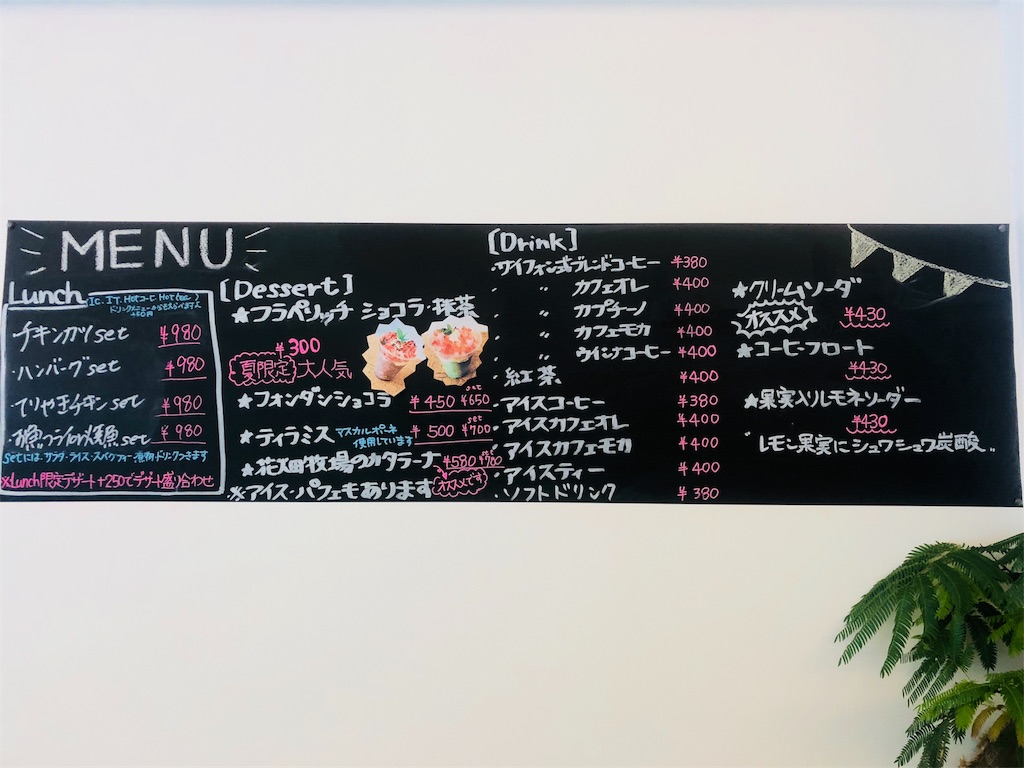 MENU
Lunch
チキンカツset ¥980
・ハンバーグset ¥980
・てりや王チキンset ¥980
・魚フライor焼魚set ¥980
setには、サラダ・ライス・スパゲティー・煮物・ドリンクつきます
※Lunch限定デザート+250でデザート盛り合わせ
[Dessert]
★フラペリッチ ショコラ・抹茶
¥300
夏限定 大人気
★フォンダンショコラ ¥450 set ¥650
★ティラミス マスカルポーネ使用しています ¥500 set ¥700
★花畑牧場のカタラーナ ¥580
※アイス・パフェもあります オススメです
[Drink]
・サイフォン式ブレンドコーヒー ¥380
・ 〃 カフェオレ ¥400
・ 〃 カプチーノ ¥400
・ 〃 カフェモカ ¥400
・ 〃 ウインナコーヒー ¥400
・紅茶 ¥400
・アイスコーヒー ¥380
・アイスカフェオレ ¥400
・アイスカフェモカ ¥400
・アイスティー ¥400
・ソフトドリンク ¥380
★クリームソーダ
オススメ ¥430
★コーヒーフロート
¥430
★果実入りレモネソーダー
¥430
レモン果実にシュワシュワ炭酸..